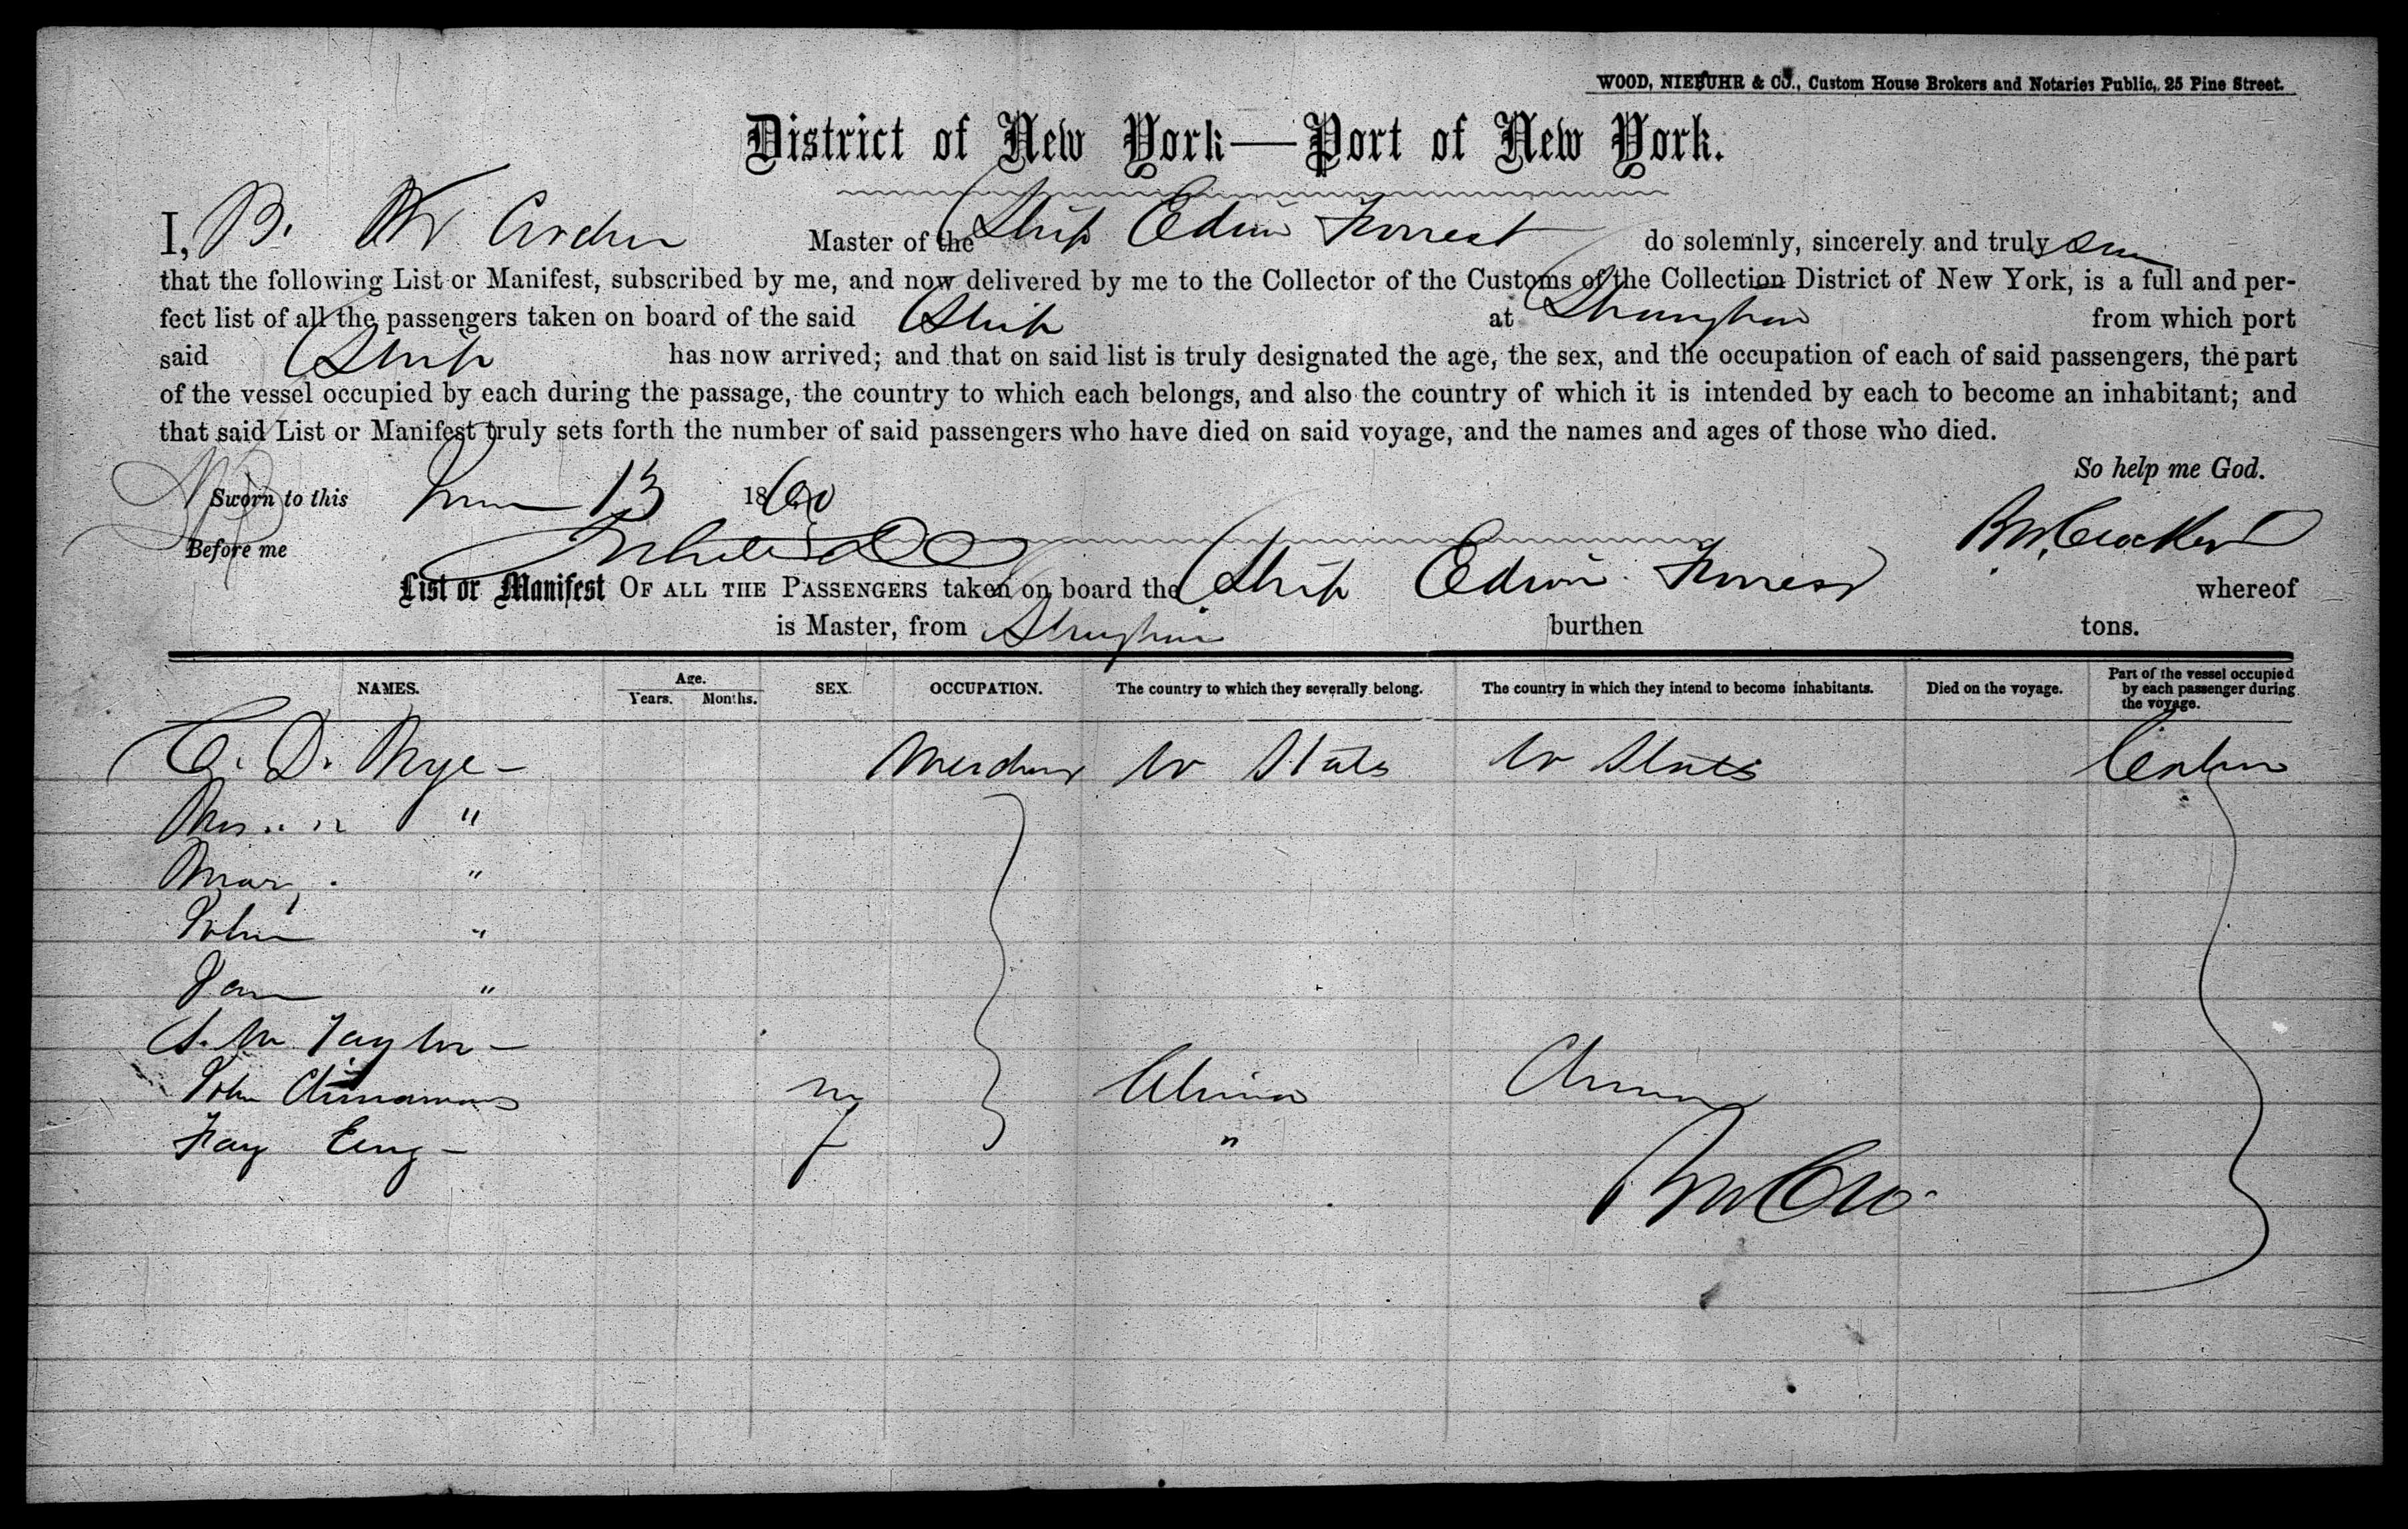 WOOD, NIEBUHR & CO., Custom House Brokers and Notaries Public, 25 Pine Street.
District of New York—Port of New York.
I, B. W Crocker Master of the Ship Edwin Forrest do solemnly, sincerely and truly swear
that the following List or Manifest, subscribed by me, and now delivered by me to the Collector of the Customs of the Collection District of New York, is a full and per-
fect list of all the passengers taken on board of the said Ship at Shanghai from which port
said Ship has now arrived; and that on said list is truly designated the age, the sex, and the occupation of each of said passengers, the part
of the vessel occupied by each during the passage, the country to which each belongs, and also the country of which it is intended by each to become an inhabitant; and
that said List or Manifest truly sets forth the number of said passengers who have died on said voyage, and the names and ages of those who died.
So help me God.
Sworn to this June 13 1860
Before me
BW Crocker
List or Manifest OF ALL THE PASSENGERS taken on board the Ship Edwin Forrest whereof
is Master, from Shanghai burthen tons.
NAMES. Age. Years. Months. SEX. OCCUPATION. The country to which they severally belong. The country in which they intend to become inhabitants. Died on the voyage. Part of the vessel occupied by each passenger during the voyage.
C. D. Nye — Merchant U States U States Cabin
Mrs " " "
Mary "
John "
Jane "
S. W Taylor —
John Chinaman m China China
Fay Eng — f "
BWCro